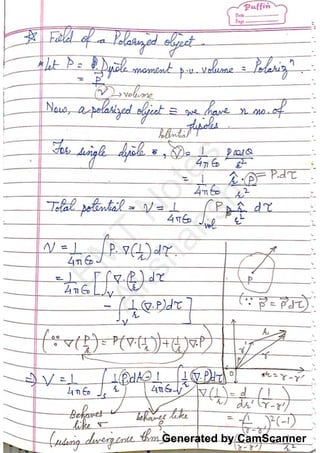 Puffin
Date
Page
* Field of a Polarized object.
* Let P = Dipole moment p.u. volume = Polarizⁿ.
= p⃗ / V → volume
Now, a polarized object ≡ we have n no. of
dipoles.
Potential
For single dipole, V = 1/4πε₀ p cosθ/r²
= 1/4πε₀ r̂·P/r² = P.dτ
Total potential = V = 1/4πε₀ ∫vol P·r̂/r² dτ
V = 1/4πε₀ ∫ P.∇(1/r) dτ
= 1/4πε₀ [∫v ∇.(P/r) dτ
− ∫v 1/r (∇.P)dτ]
P
(∵ p⃗ = P⃗dτ)
(∵ ∇(P/r) = P(∇·(1/r)) + (1/r)∇.P)
r = r−r'
⇒ V = 1/4πε₀ ∫s 1/r (P)dA − 1/4πε₀ ∫v 1/r (∇.P)dτ
∇(1/r) = d/dr' (1/r−r')
Behaves like σ
behaves like ρ
= −(1/r−r')²(−1)
(using divergence thm)
Generated by CamScanner